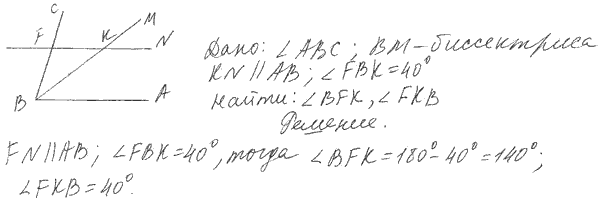 C
M
F
K
N
B
A
Дано: ∠ABC; BM - биссектриса
KN || AB; ∠FBK = 40°
Найти: ∠BFK, ∠FKB
Решение.
FN || AB; ∠FBK = 40°, тогда ∠BFK = 180° - 40° = 140°;
∠FKB = 40°.